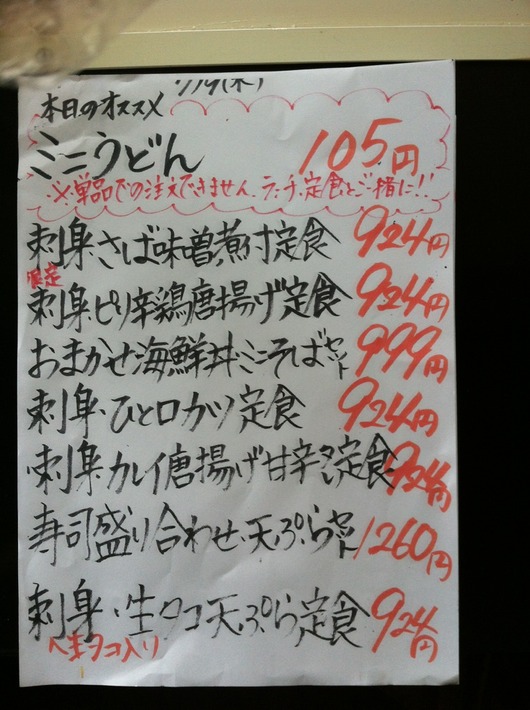 7/19(木)
本日のオススメ
ミニうどん 105円
※単品での注文できません ランチ、定食とご一緒に!!
刺身・さば味噌煮付定食 924円
限定
刺身・ピリ辛鶏唐揚げ定食 924円
おまかせ海鮮丼・ミニそばセット 999円
刺身・ひと口カツ定食 924円
刺身・カレイ唐揚げ甘辛タレ定食 924円
寿司盛り合わせ・天ぷらセット 1260円
刺身・生タコ天ぷら定食 924円